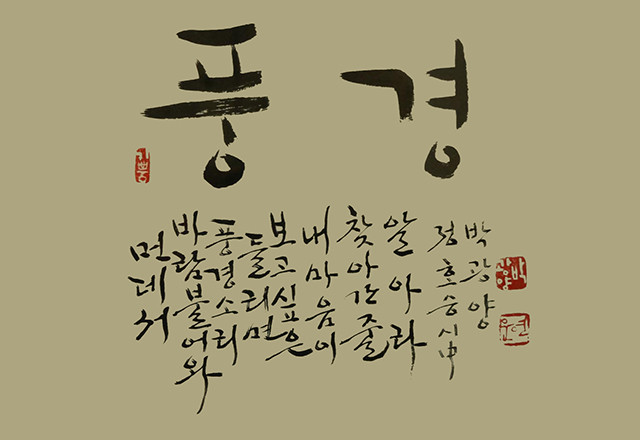 풍경
기쁨
먼데서
바람불어와
풍경소리
들리면
보고싶은
내마음이
찾아간줄
알아라
정호승시中
박광양
박광양